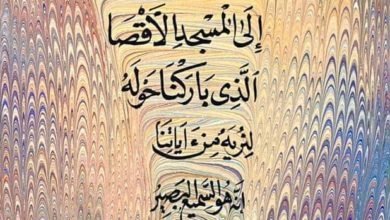 إِلَى الْمَسْجِدِ الْأَقْصَا
الَّذِي بَارَكْنَا حَوْلَهُ
لِنُرِيَهُ مِنْ آيَاتِنَا
إِنَّهُ هُوَ السَّمِيعُ الْبَصِيرُ